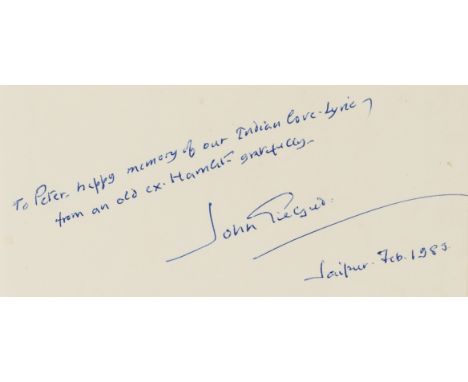 To Peter - happy memory of our Indian Love-Lyric,
from an old ex. Hamlet - gratefully -
John Gielgud.
Jaipur. Feb. 1983.